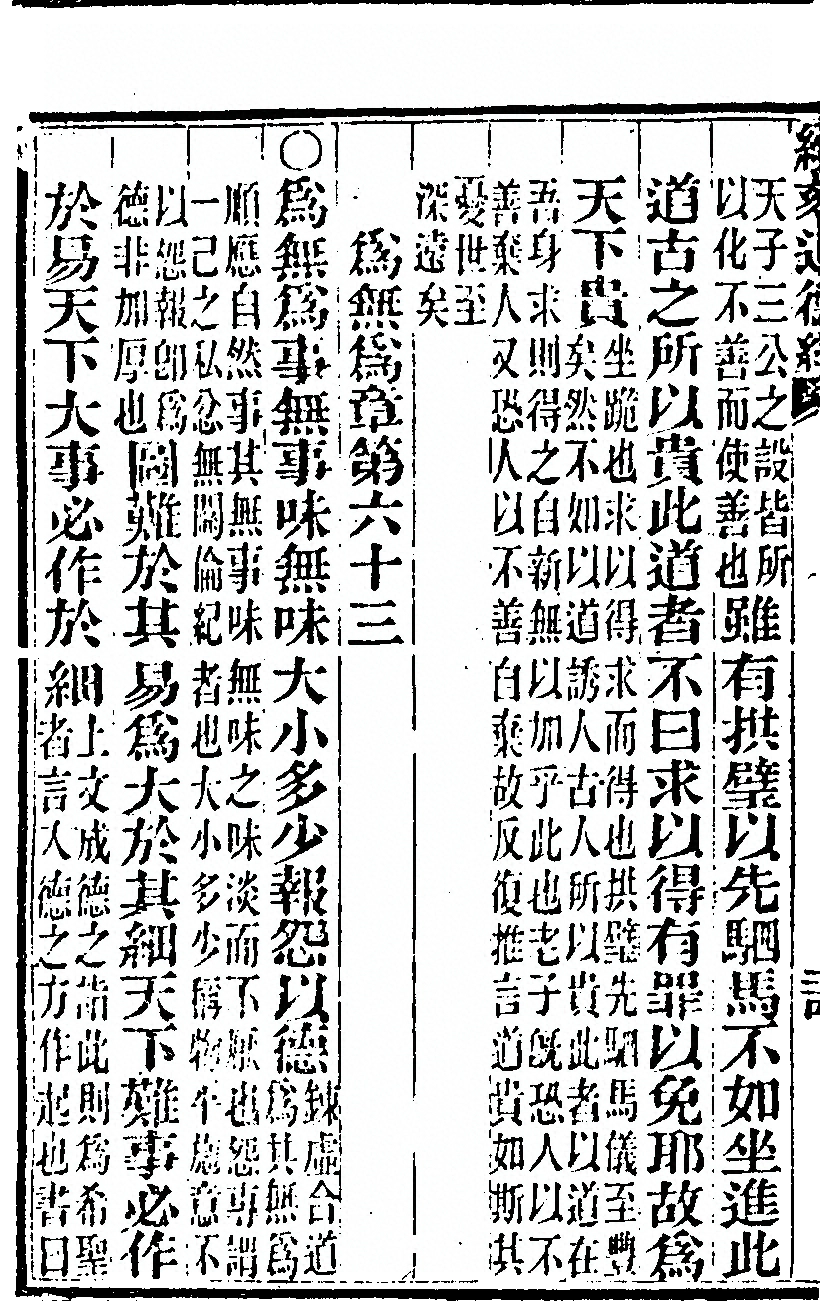 天子三公之設皆所
以化不善而使善也
雖有拱璧以先駟馬不如坐進此
道古之所以貴此道者不曰求以得有罪以免耶故爲
天下貴
坐跪也求以得求而得也拱璧先駟馬儀至豐
矣然不如以道誘人古人所以貴此者以道在
吾身求則得之自新無以加乎此也老子既恐人以不
善棄人又恐人以不善自棄故反復推言道貴如斯其
憂世至
深遠矣
爲無爲章第六十三
○爲無爲事無事味無味大小多少報怨以德
鍊虛合道
爲其無爲
順應自然事其無事味無味之味淡而不厭也怨事謂
一己之私忿無關倫紀者也大小多少稱物平施意不
以怨報卽爲
德非加厚也
圖難於其易爲大於其細天下難事必作
於易天下大事必作於細
上文成德之詣此則爲希聖
者言入德之方作起也書曰